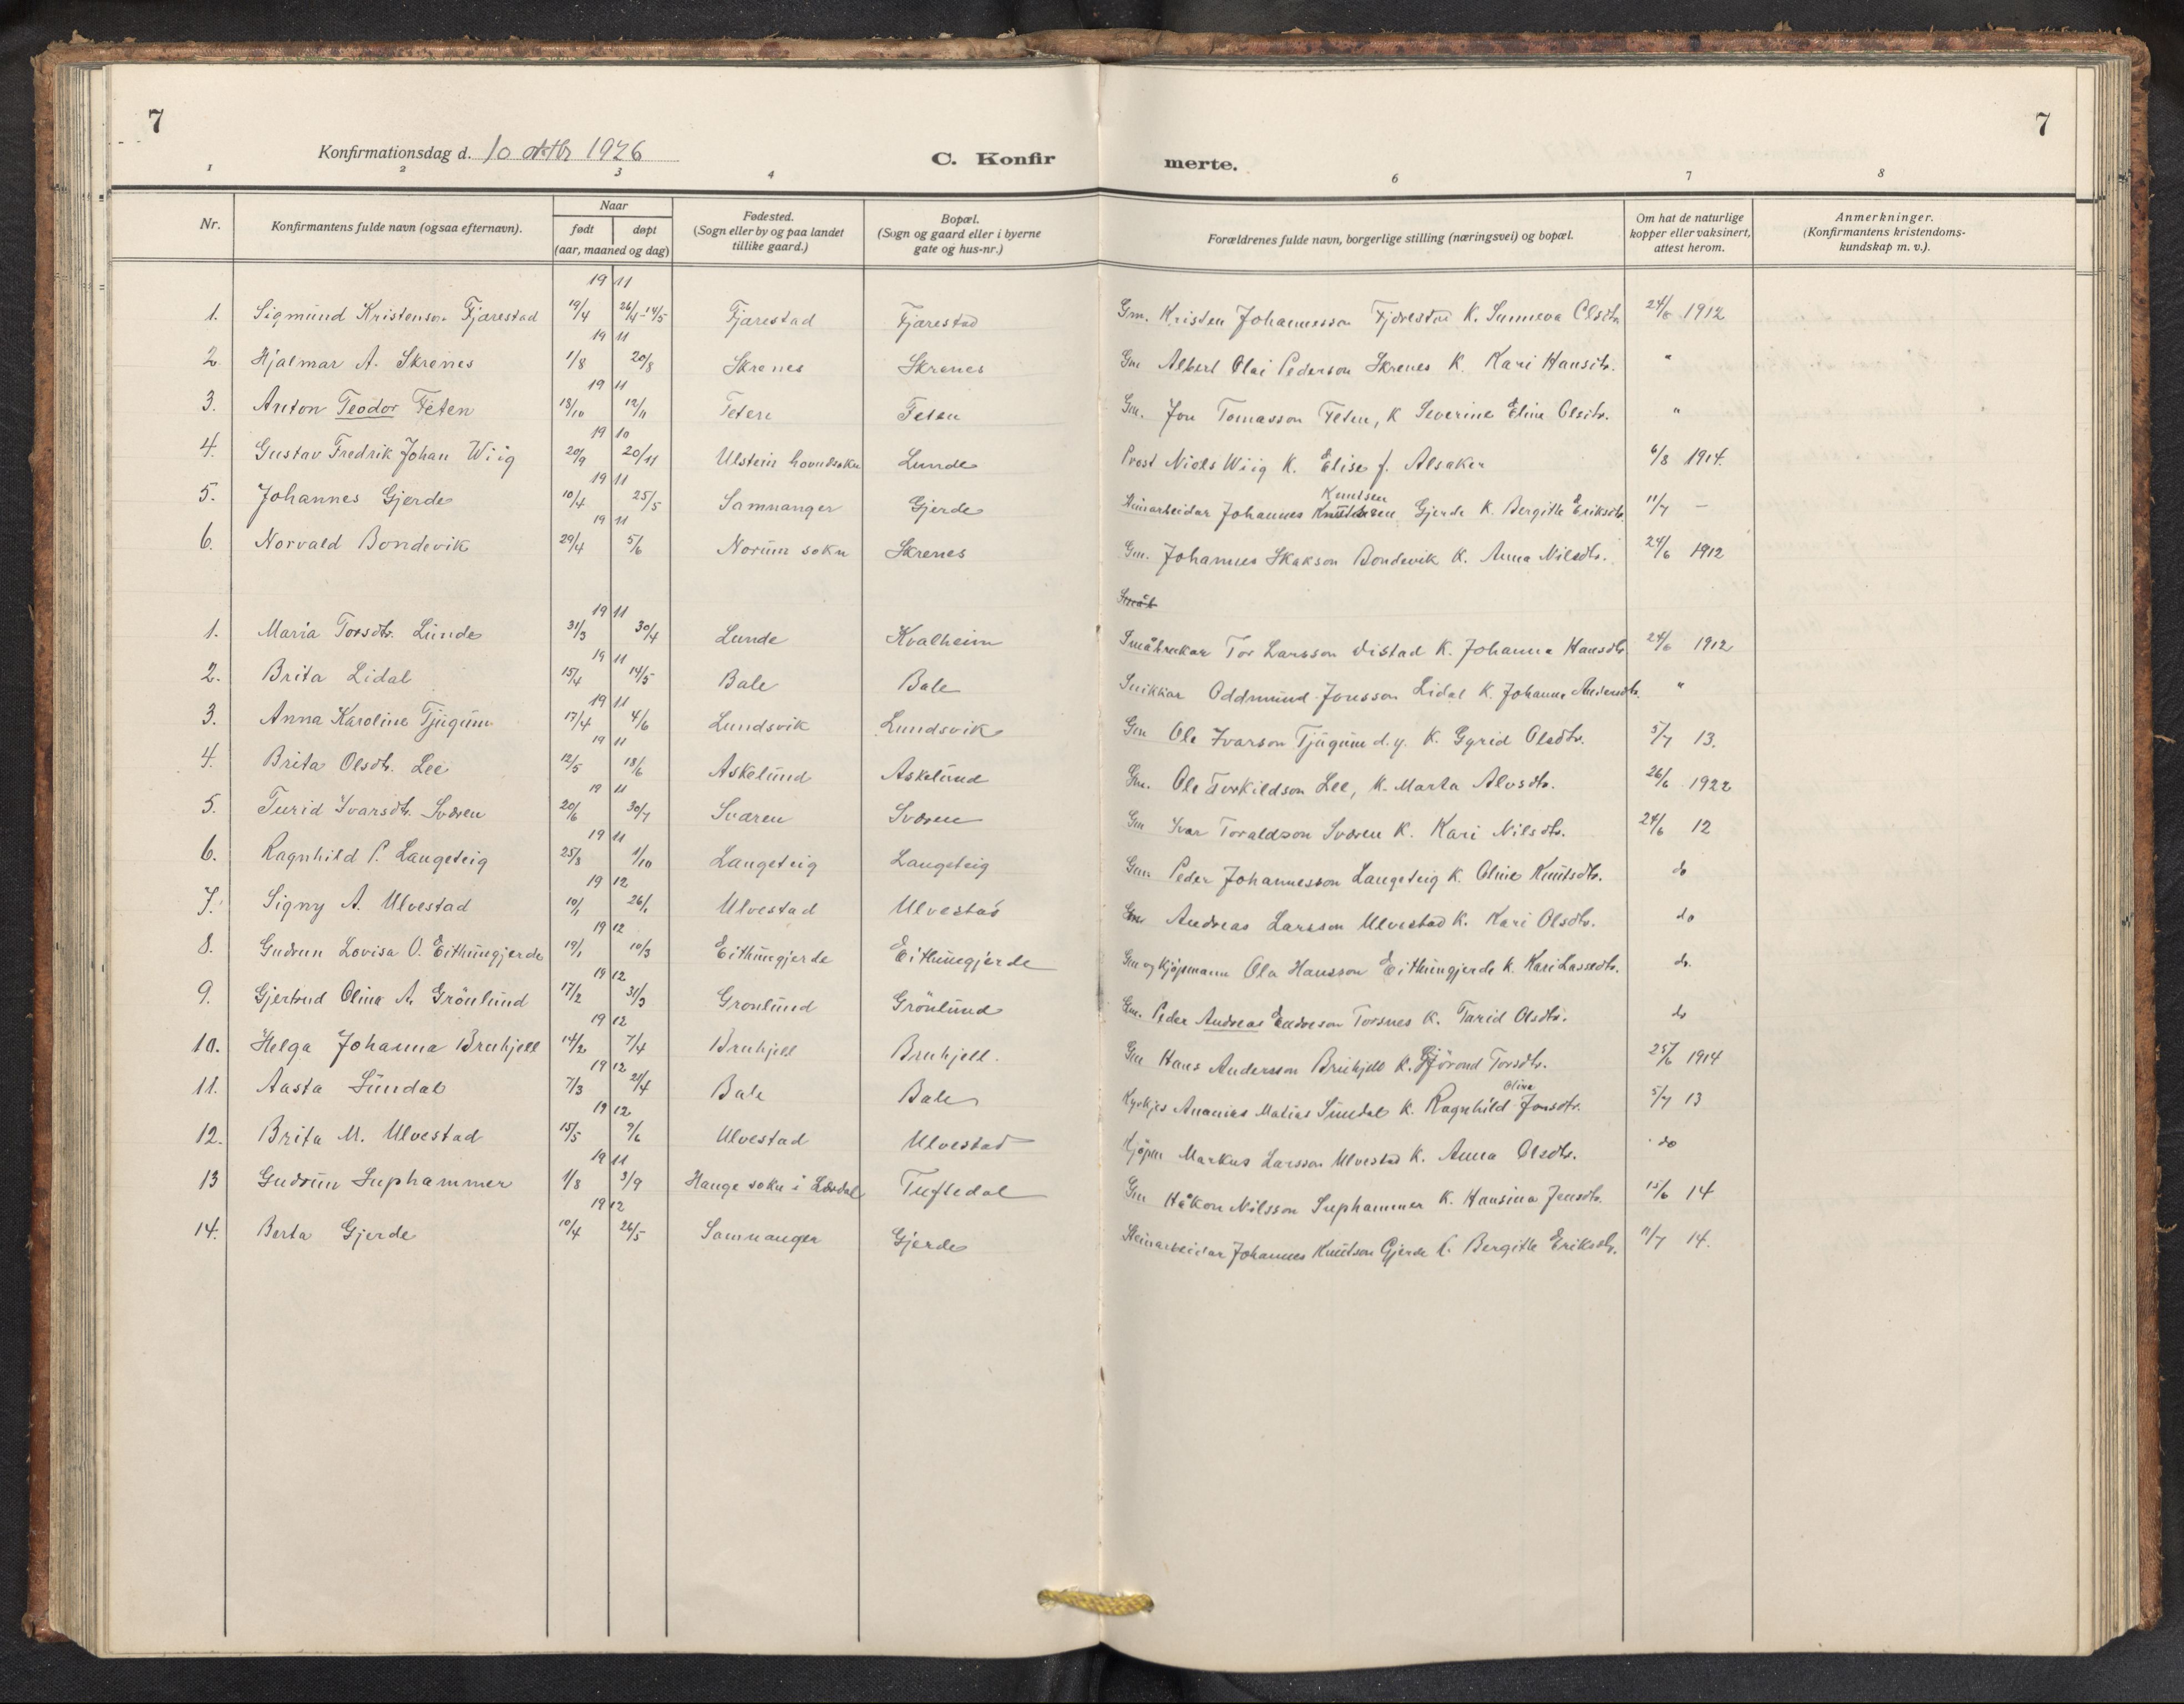 7
7
Konfirmationsdag d. 10 oktbr 1926
C. Konfir merte.
1 2 3 4 6 7 8
Nr.
Konfirmantens fulde navn (ogsaa efternavn).
Naar
født
døpt
(aar, maaned og dag)
Fødested.
(Sogn eller by og paa landet
tillike gaard.)
Bopæl.
(Sogn og gaard eller i byerne
gate og hus-nr.)
Forældrenes fulde navn, borgerlige stilling (næringsvei) og bopæl.
Om hat de naturlige
kopper eller vaksinert,
attest herom.
Anmerkninger.
(Konfirmantens kristendoms-
kundskap m. v.).
19 11
1. Sigmund Kristenson Fjærestad 19/4 26/4-14/5 Fjærestad Fjærestad Gm. Kristen Johannesson Fjærestad K. Sunneva Olsdtr. 24/6 1912
19 11
2. Hjalmar A. Skrenes 1/8 20/8 Skrenes Skrenes Gm Albert Olai Pederson Skrenes K. Kari Hansdtr. "
19 11
3. Anton Teodor Feten 18/10 12/11 Feten Feten Gm. Jon Tomasson Feten, K Severine Eline Olsdtr. "
19 10
4. Gustav Fredrik Johan Wiig 20/9 20/11 Ulstein hovudsokn Lunde Prost Niels Wiig K. Elise f. Alsaker 6/8 1914.
19 11
5. Johannes Gjerde 10/4 25/5 Samnanger Gjerde Steinarbeidar Johannes Knutsen Gjerde K. Bergitte Eriksdtr. 11/7 —
19 11
6. Norvald Bondevik 29/4 5/6 Norum sokn Skrenes Gm. Johannes Skakson Bondevik K. Anna Nilsdtr. 24/6 1912
Småb
19 11
1. Maria Torsdtr. Lunde 31/3 30/4 Lunde Kvalheim Småbrukar Tor Larsson Vistad K. Johanna Hansdtr. 24/6 1912
19 11
2. Brita Lidal 15/4 14/5 Bale Bale Snikkar Oddmund Jonsson Lidal K. Johanna Andersdtr. "
19 11
3. Anna Karoline Tjugum 17/4 4/6 Lundsvik Lundsvik Gm Ole Ivarson Tjugum d.y. K. Gyrid Olsdtr. 5/7 13.
19 11
4. Brita Olsdtr. Lee 12/5 18/6 Askelund Askelund Gm. Ole Torkildson Lee, K. Marta Alvsdtr. 26/6 1922
19 11
5. Turid Ivarsdtr. Sværen 20/6 30/7 Sværen Sværen Gm Ivar Toraldson Sværen K. Kari Nilsdtr. 24/6 12
19 11
6. Ragnhild P. Langeteig 25/8 1/10 Langeteig Langeteig Gm. Peder Johannesson Langeteig K. Oline Knutsdtr. do
19 12
7. Signy A. Ulvestad 10/1 26/1 Ulvestad Ulvestad Gm Andreas Larsson Ulvestad K. Kari Olsdtr. do
19 12
8. Gudrun Lovisa O. Eithungjerde 19/1 10/3 Eithungjerde Eithungjerde Gm og Kjøpmann Ola Hansson Eithungjerde K. Kari Lassedtr. do.
19 12
9. Gjertrud Olina A. Grönlund 17/2 31/3 Gronlund Grönlund Gm. Peder Andreas Endreson Torsnes K. Turid Olsdtr. do
19 12
10. Helga Johanna Bruhjell 14/2 7/4 Bruhjell Bruhjell. Gm Hans Andersson Bruhjell K. Gjörond Torsdtr. 25/6 1914
19 12
11. Aasta Sundal 7/3 21/4 Bale Bale Kyrkjes Ananias Matias Sundal K. Ragnhild Olina Jonsdtr. 5/7 13
19 12
12. Brita M. Ulvestad 15/5 9/6 Ulvestad Ulvestad Kjøpm Markus Larsson Ulvestad K. Anna Olsdtr. do
19 11
13 Gudrun Suphammer 1/8 3/9 Hauge sokn i Lærdal Tuftedal Gm Håkon Nilsson Suphammer K. Hansina Jensdtr. 15/6 14
19 12
14. Berta Gjerde 10/4 26/5 Samnanger Gjerde Steinarbeidar Johannes Knutson Gjerde K. Bergitte Eriksdtr. 11/7 14.